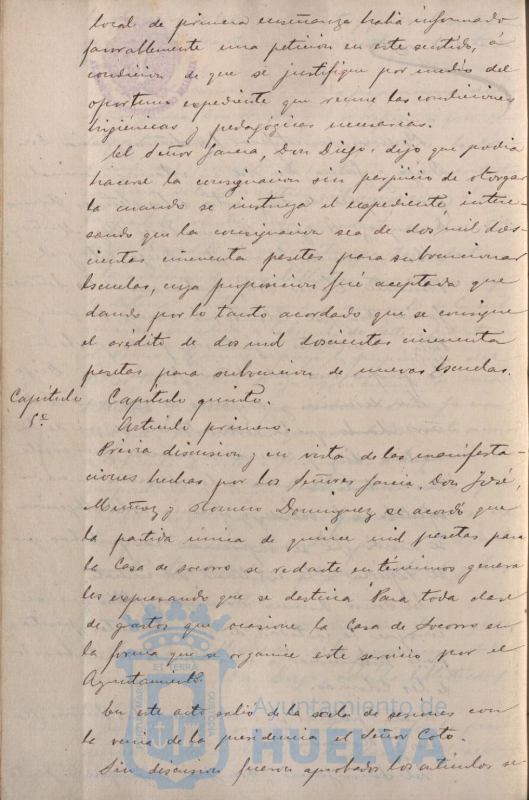 local de primera enseñanza había informado
favorablemente una petición en este sentido, á
condicion de que se justifique por medio del
oportuno expediente que reune las condiciones
higiénicas y pedagógicas necesarias.
El Señor García, Don Diego, dijo que podía
hacerse la consignacion sin perjuicio de otorgar
la cuando se instruya el expediente, intere-
sando que la consignacion sea de dos mil dos-
cientas cincuenta pesetas para subvencionar
Escuelas, cuya proposicion fué aceptada que
dando por lo tanto acordado que se consigne
el crédito de dos mil doscientas cincuenta
pesetas para subvencion de nuevas Escuelas.
Capítulo 5º
Capítulo quinto.
Artículo primero.
Prévia discusion y en vista de las manifesta-
ciones hechas por los Señores García, Don José,
Muñoz y Romero Dominguez se acordó que
la partida única de quince mil pesetas para
la Casa de socorro se redacte en términos genera
les expresando que se destina "Para toda clase
de gastos que ocasione la Casa de Socorro en
la forma que se organice este servicio por el
Ayuntamiento.
En este acto salió de la sala de sesiones con
la venia de la presidencia el Señor Coto.
Sin discusion fueron aprobados los artículos se
Ayuntamiento de
HUELVA